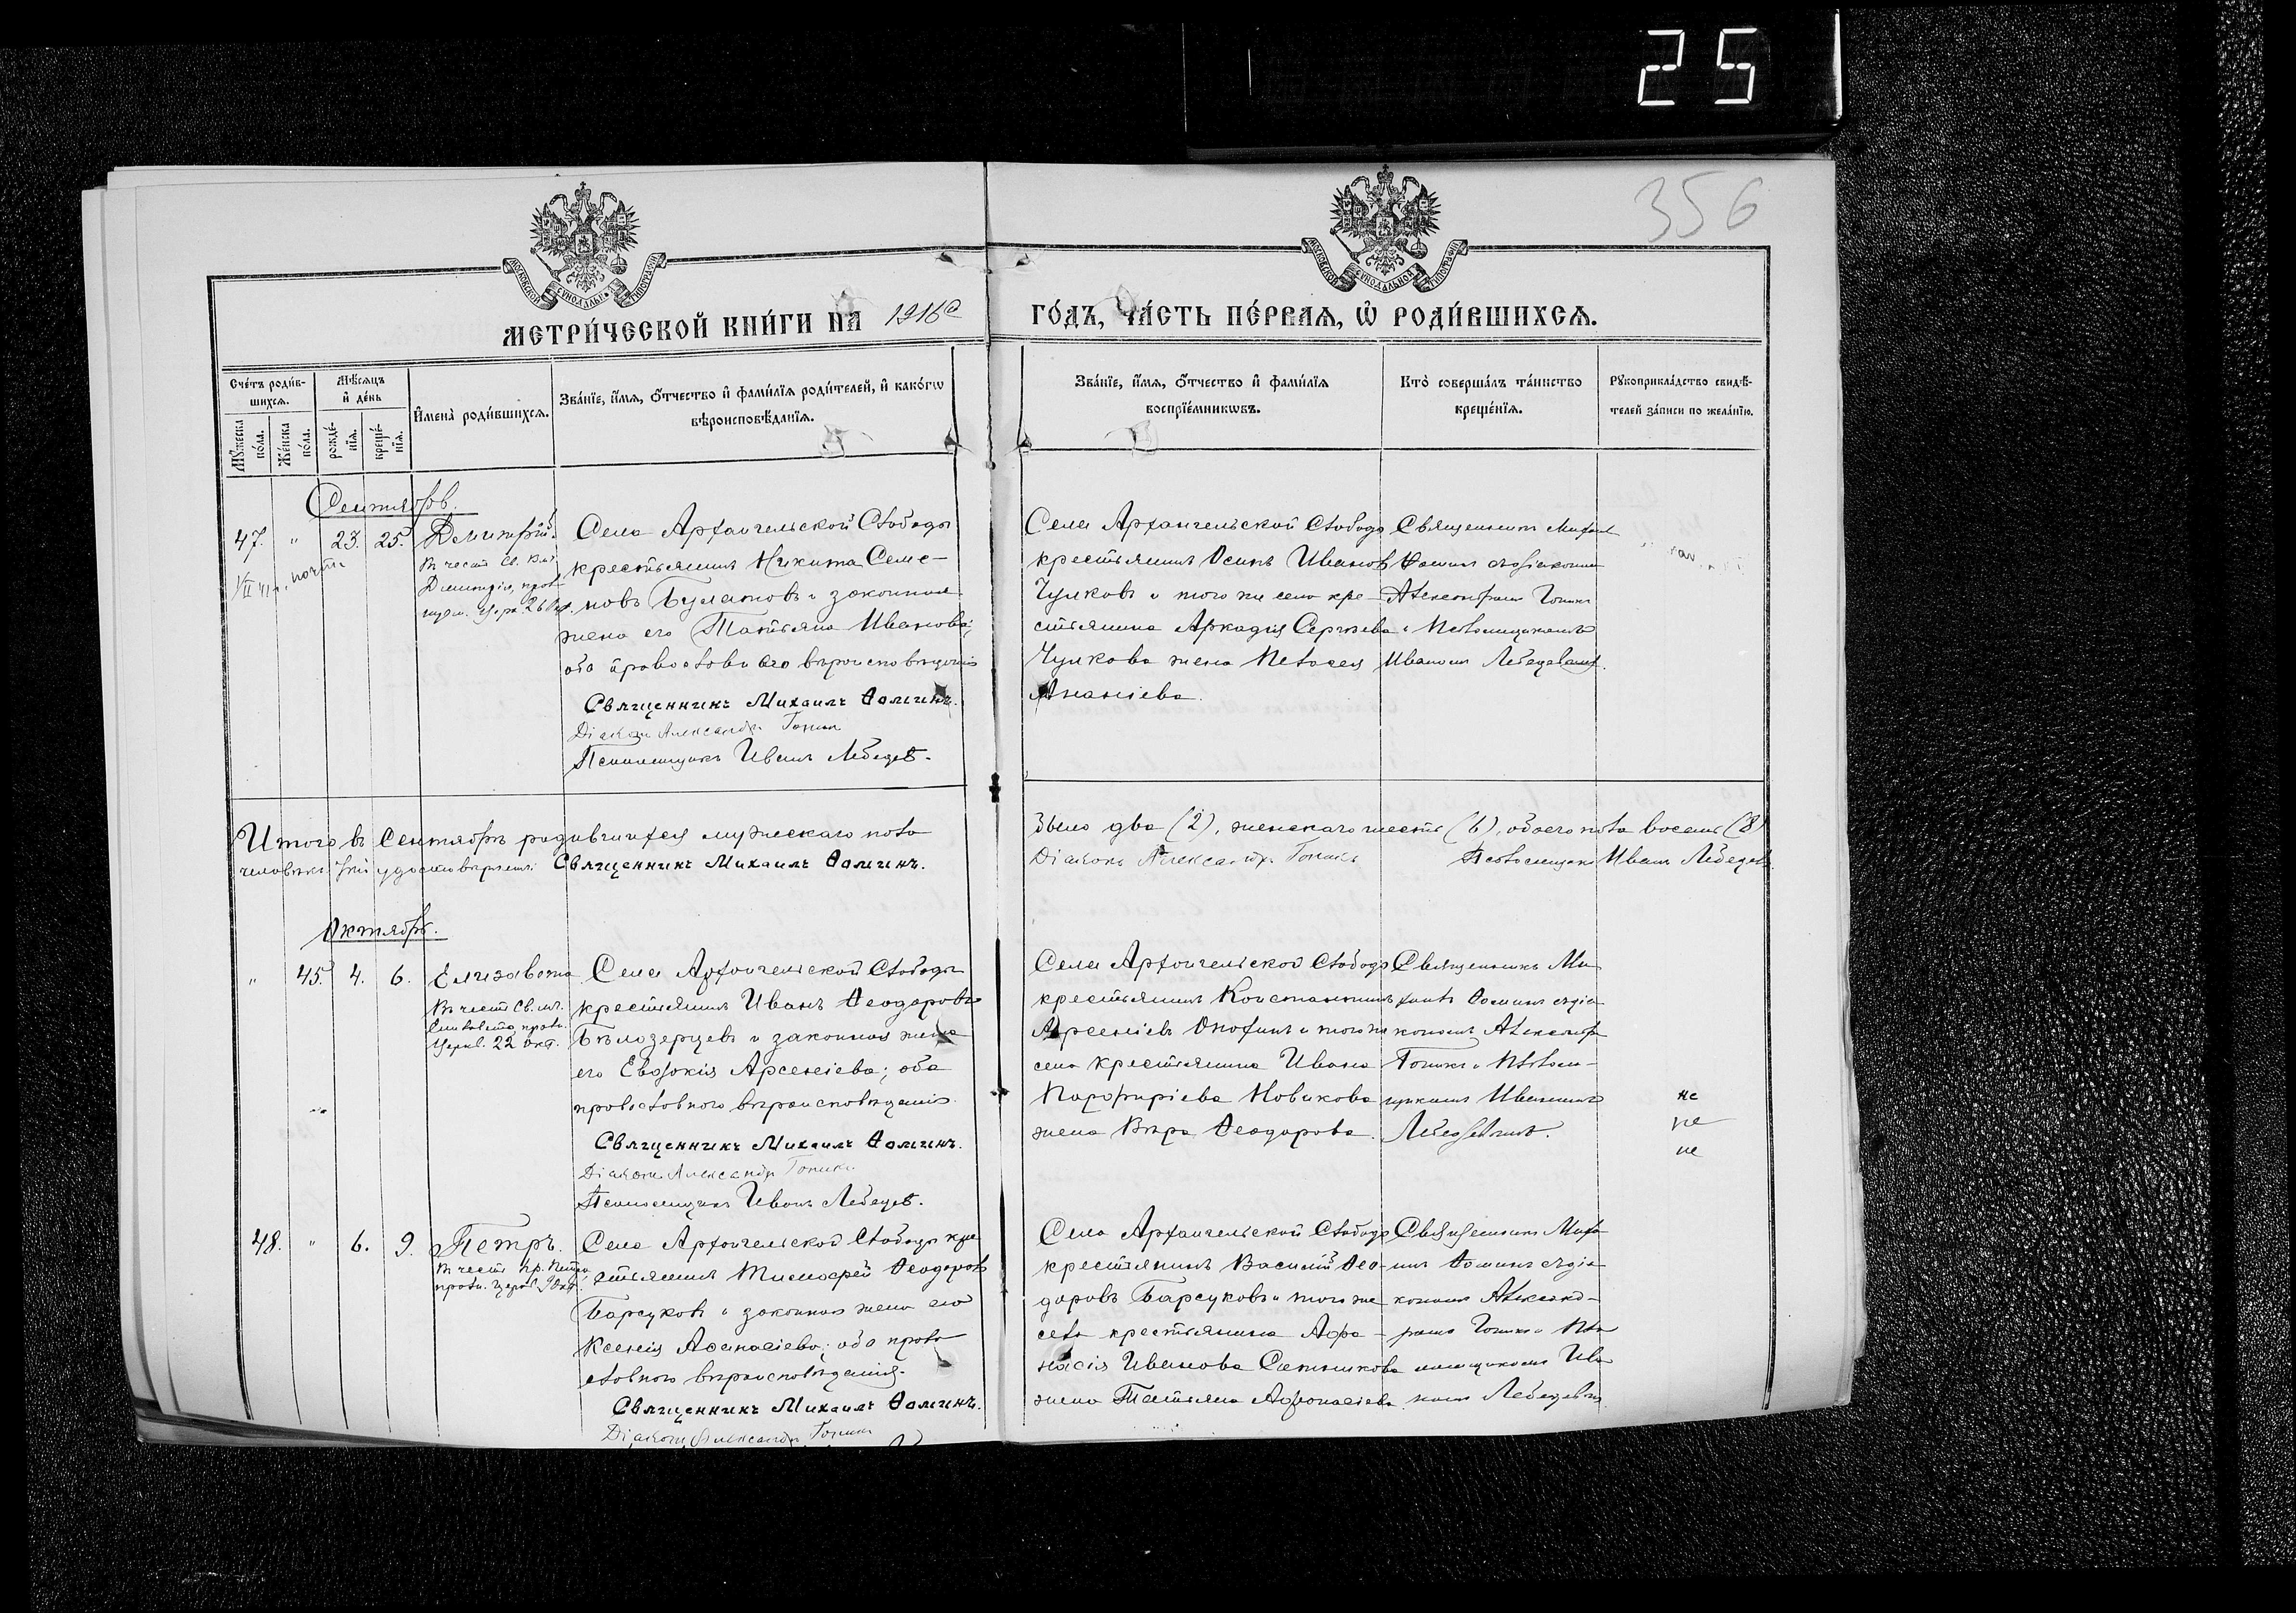 25
356
МОСКОВСКОЙ СѴНОДАЛЬНОЙ ТИПОГРАФІИ
МОСКОВСКОЙ СѴНОДАЛЬНОЙ ТИПОГРАФІИ
МЕТРИ́ЧЕСКОЙ КНИ́ГИ НА 1916 ГО́ДЪ, ЧА́СТЬ ПЕ́РВАЯ, Ѡ҆ РОДИ́ВШИХСЯ.
Сче́тъ роди́в-
шихся.
Мꙋ́жеска по́ла.
Же́нска по́ла.
Мѣ́сяцъ и҆ де́нь
рожде́-
нїя.
креще́-
нїя.
И҆мена̀ роди́вшихся.
Зва́нїе, и҆́мя, ѻ҆́тчество и҆ фами́лїя роди́телей, и҆ како́гѡ
вѣроисповѣ́данїя.
Зва́нїе, и҆́мя, ѻ҆́тчество и҆ фами́лїя
воспрїе́мникѡвъ.
Кто̀ соверша́лъ та́инство
креще́нїя.
Рꙋкоприкла́дство свидѣ́-
телей за́писи по жела́нїю.
Сентябрь.
47. " 23. 25. Дмитрій.
Въ честь Св.
Димитрія,
Села Архангельской Слободы
крестьянинъ Никита Семе-
новъ Булатовъ и законная
жена его Татьяна Иванова;
оба православнаго вѣроисповѣданія
Священникъ Михаилъ Ѳоминъ.
Діаконъ Александръ
Псаломщикъ Иванъ Лебедевъ.
Села Архангельской Слободы
крестьянинъ Осипъ Ивановъ
Чулковъ и того же села кре-
стьянина Аркадія Сергѣева
Чулкова жена Пелагея
Ананіева.
Священникъ Михаилъ
Ѳоминъ съ діакономъ
Александромъ
и Псаломщикомъ
Иваномъ Лебедевымъ.
Итого въ Сентябрѣ родившихся мужескаго пола было два (2), женскаго шесть (6), обоего пола восемь (8)
человѣкъ удостовѣряемъ: Священникъ Михаилъ Ѳоминъ. Діаконъ Александръ Псаломщикъ Иванъ Лебедевъ.
Октябрь.
" 45. 4. 6. Елизавета
Въ честь Св. мч.
Елисаветы, празд.
Церк. 22 Окт.
Села Архангельской Слободы
крестьянинъ Иванъ Ѳеодоровъ
Бѣлозерцевъ и законная жена
его Евдокія Арсеніева; оба
православнаго вѣроисповѣданія.
Священникъ Михаилъ Ѳоминъ.
Діаконъ Александръ
Псаломщикъ Иванъ Лебедевъ.
Села Архангельской Слободы
крестьянинъ Константинъ
Арсеніевъ и того же
села крестьянина Ивана
Порфиріева Новикова
жена Вѣра Ѳеодорова.
Священникъ Ми-
хаилъ Ѳоминъ съ діа-
кономъ Александр
и Псалом-
щикомъ Иваномъ
Лебедевымъ.
не
не
не
48. " 6. 9. Петръ.
Въ честь пр. Петра,
празд. Церк. 9 Окт.
Села Архангельской Слободы кре-
стьянинъ Тимоѳей Ѳеодоровъ
Барсуковъ и законная жена его
Ксенія Аѳанасіева; оба право-
славнаго вѣроисповѣданія.
Священникъ Михаилъ Ѳоминъ.
Діаконъ Александръ
Села Архангельской Слободы
крестьянинъ Василій Ѳео-
доровъ Барсуковъ и того же
села крестьянина Афа-
насія Иванова Ситникова
жена Татьяна Афонасіева.
Священникъ Миха-
илъ Ѳоминъ съ діа-
кономъ Александ-
ромъ и Пса-
ломщикомъ Ива-
номъ Лебедевымъ